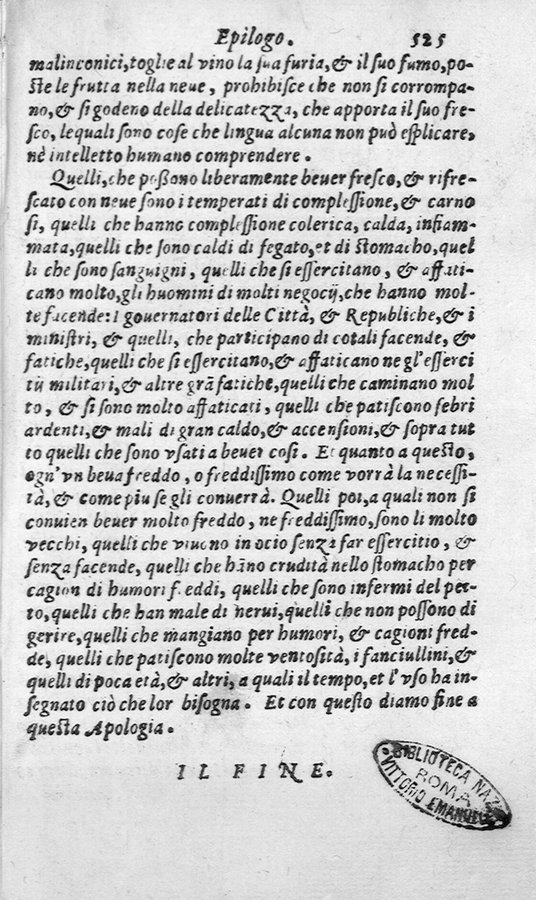 Epilogo. 525
malinconici, toglie al vino la sua furia, & il suo fumo, po-
ste le frutta nella neue, prohibisce che non si corrompa-
no, & si godeno della delicatezza, che apporta il suo fre-
sco, le quali sono cose che lingua alcuna non può esplicare,
nè intelletto humano comprendere.
Quelli, che possono liberamente beuer fresco, & rifre-
scato con neue sono i temperati di complessione, & carno
si, quelli che hanno complessione colerica, calda, infiam-
mata, quelli che sono caldi di fegato, et di stomacho, quel
li che sono sanguigni, quelli che si essercitano, & affati-
cano molto, gli huomini di molti negocij, che hanno mol-
te facende: i gouernatori delle Città, & Republiche, & i
ministri, & quelli, che participano di cotali facende, &
fatiche, quelli che si essercitano, & affaticano ne gl'esserci
tij militari, & altre grã fatiche, quelli che caminano mol
to, & si sono molto affaticati, quelli che patiscono febri
ardenti, & mali di gran caldo, & accensioni, & sopra tut
to quelli che sono vsati a beuer cosi. Et quanto a questo,
ogn'vn beua freddo, o freddissimo come vorrà la necessi-
tà, & come piu se gli conuerrà. Quelli poi, a quali non si
conuien beuer molto freddo, ne freddissimo, sono li molto
vecchi, quelli che viuono in ocio senza far essercitio, &
senza facende, quelli che hãno crudità nello stomacho per
cagion di humori freddi, quelli che sono infermi del pet-
to, quelli che han male di nerui, quelli che non possono di
gerire, quelli che mangiano per humori, & cagioni fred-
de, quelli che patiscono molte ventosità, i fanciullini, &
quelli di poca età, & altri, a quali il tempo, et l'vso ha in-
segnato ciò che lor bisogna. Et con questo diamo fine a
questa Apologia.
IL FINE.
BIBLIOTECA NAZ
ROMA
VITTORIO EMANUELE